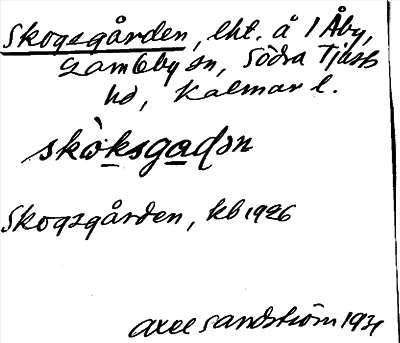 Skogsgården, lht. å 1 Åby,
Gamleby sn, Södra Tjusts
hd, Kalmar l.
skòksgaḍən
Skogsgården, kb 1926
Axel Sandström 1931